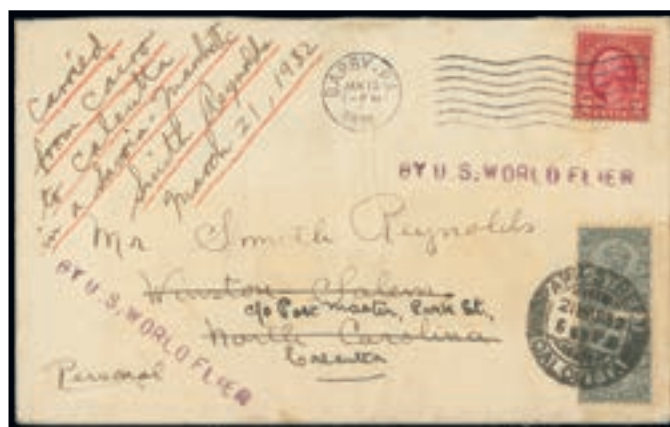 Carried
from Cairo
to Calcutta
in a Savoia-Marchetti
Smith Reynolds
March 21, 1932
DARBY, PA.
JAN 13
BY U.S. WORLD FLIER
Mr Smith Reynolds
Winston-Salem
c/o Post Master, Park St.,
North Carolina
Calcutta
BY U.S. WORLD FLIER
Personal
PARK STREET
CALCUTTA